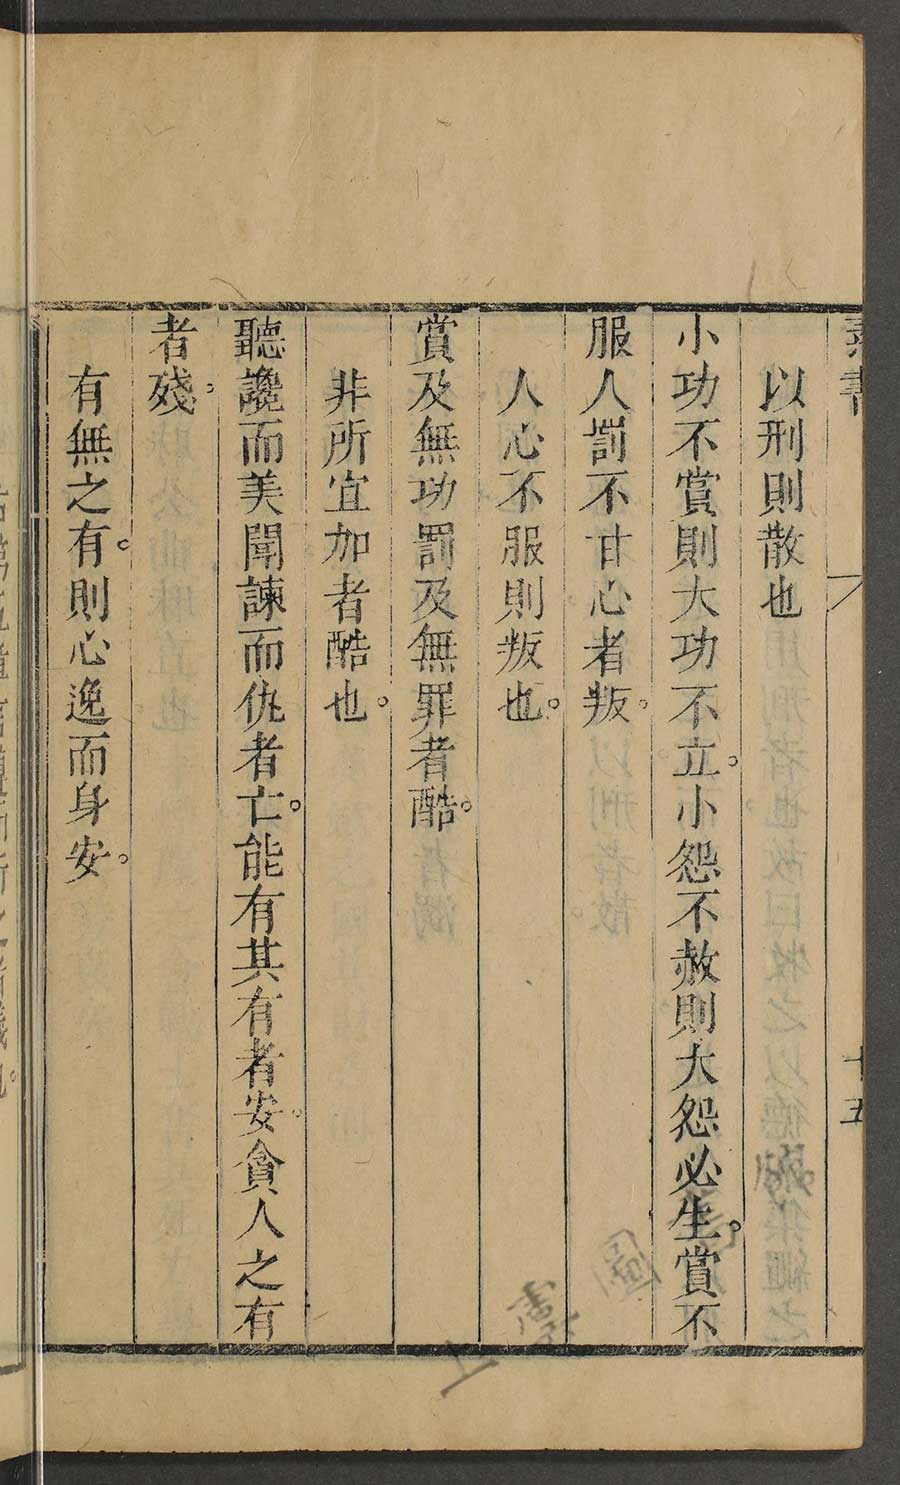 素書
十五
以刑則散也
小功不賞則大功不立。小怨不赦則大怨必生。賞不
服人罰不甘心者叛。
人心不服則叛也。
賞及無功罰及無罪者酷。
非所宜加者酷也。
聽讒而美聞諫而仇者亡。能有其有者安。貪人之有
者殘。
有無之有。則心逸而身安。